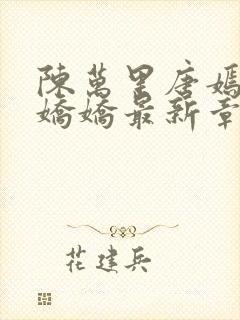 陳萬里唐嫣
嬌嬌最新章
花建兵